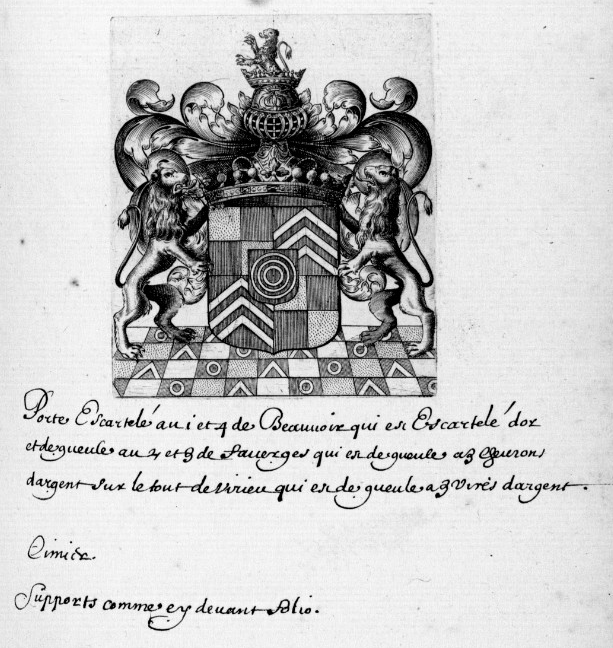 Porte Escartelé au 1 et 4 de Beauuoir qui est Escartelé dor
et de gueule au 2 et 3 de Fauerges qui est de gueule a 3 Cheurons
dargent sur le tout de Virieu qui est de gueule a 3 Virés dargent.
Cimier.
Supports comme cy deuant folio.